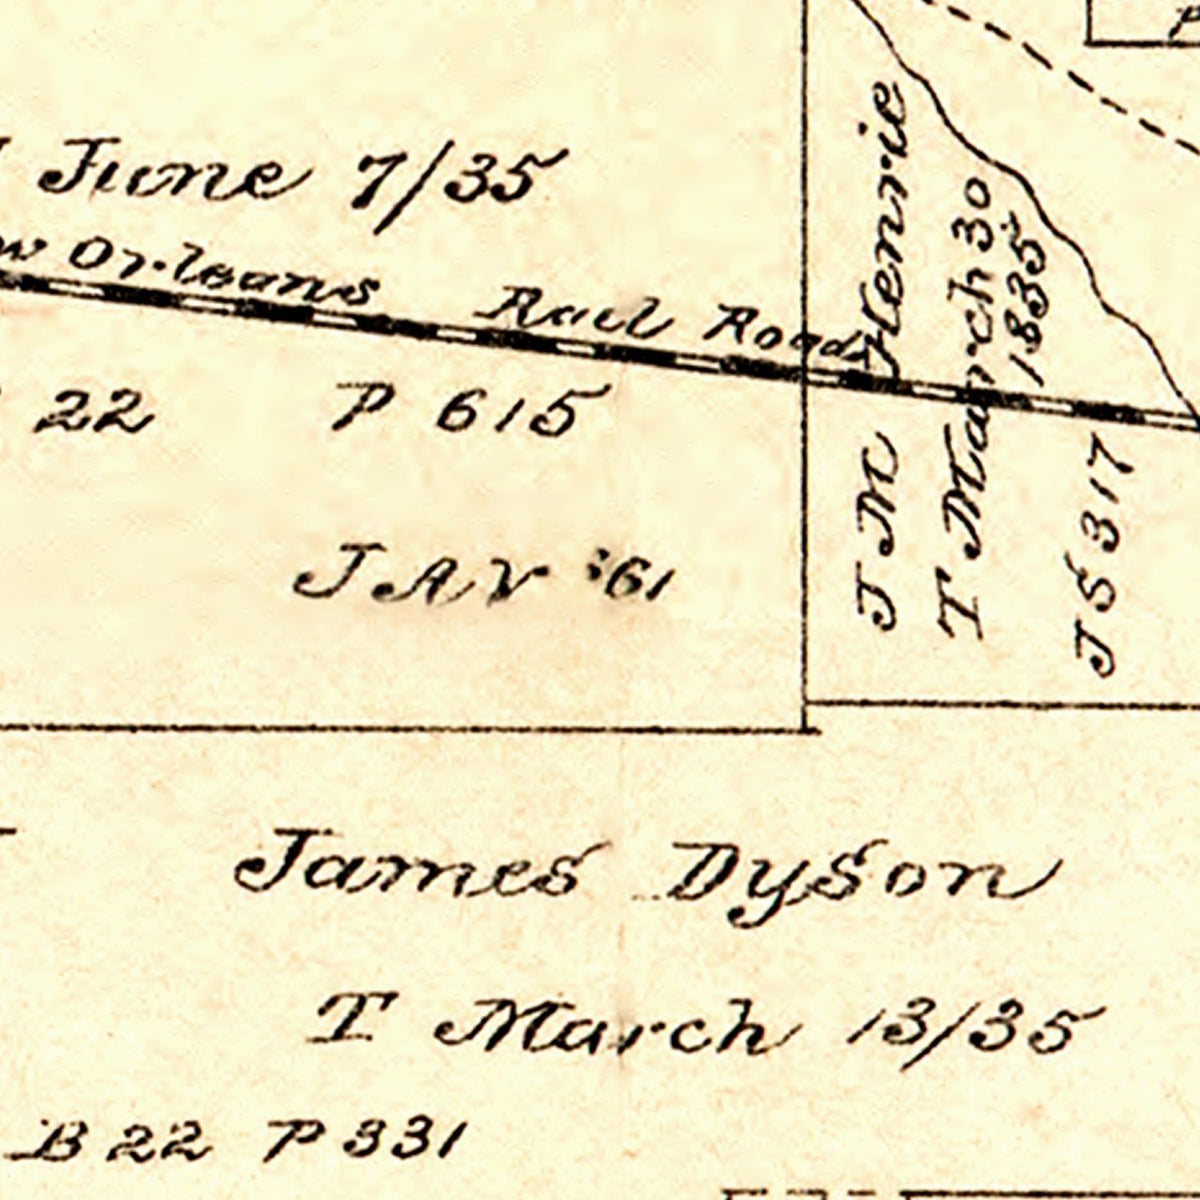 June 7/35
Orleans Rail Road
22 P 615
J A V '61
J M Henrie
T March 30
1835
J S 317
James Dyson
T March 13/35
B 22 P 331